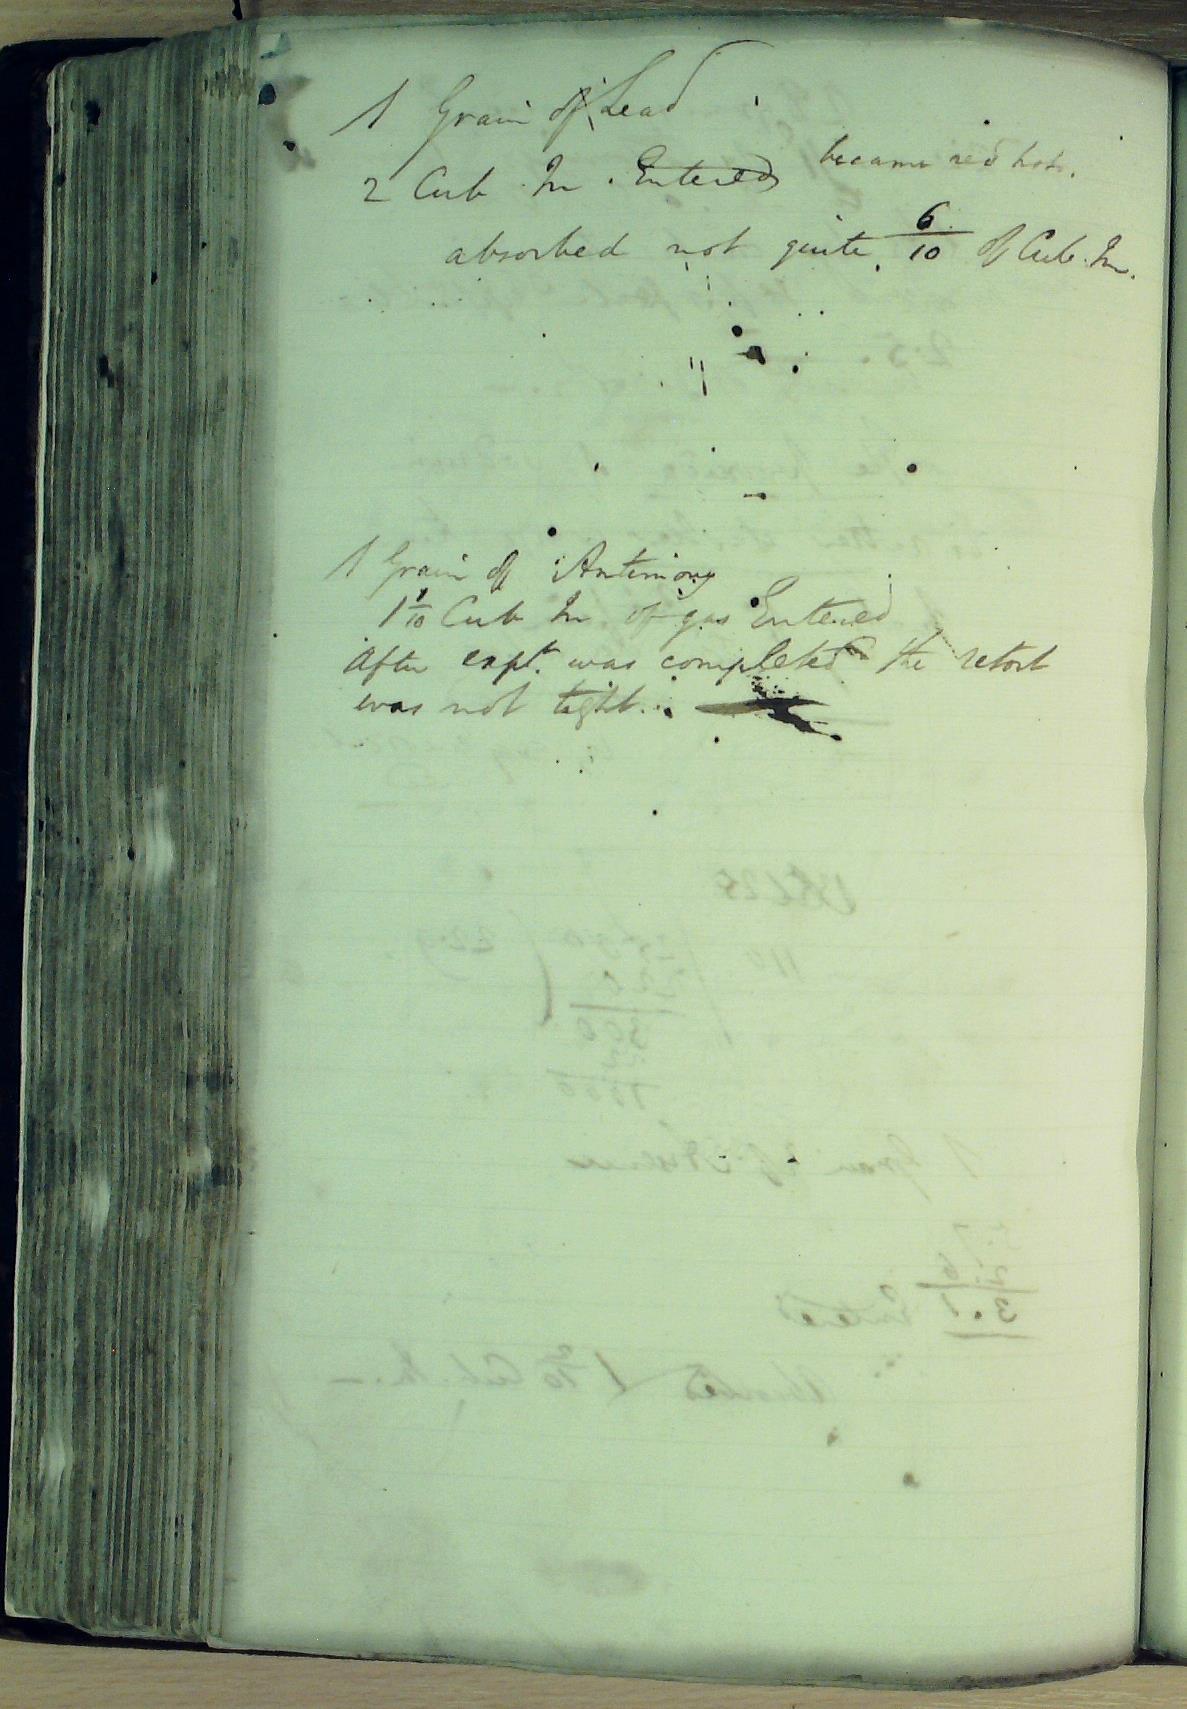 1 Grain of Lead
2 Cub. In. Entered became red hot.
absorbed not quite 6/10 of Cub. In.
1 Grain of Antimony
1 1/10 Cub In. of gas Entered
After expt. was completed the retort
was not tight.